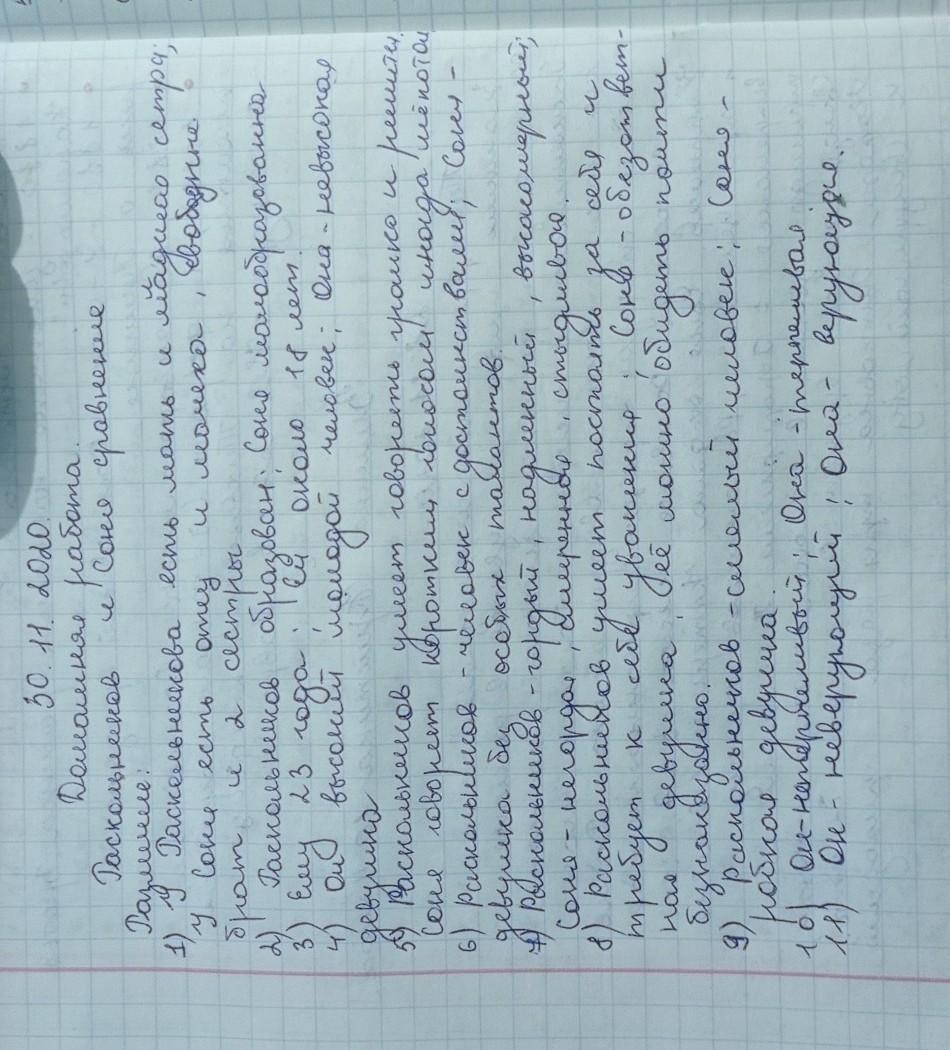 30. 11. 2020.
Домашняя работа.
Раскольников и Соня сравнение
Различие:
1) У Раскольникова есть мать и младшая сестра;
у Сони есть отец и мачеха, сводные
брат и 2 сестры.
2) Раскольников образован; Соня малообразованна
3) Ему 23 года; ей около 18 лет.
4) Он высокий молодой человек; Она - невысокая
девушка
5) Раскольников умеет говорить громко и
Соня говорит кротким голосом иногда шёпотом
6) Раскольников - человек с достоинствами; Соня -
девушка без особых талантов.
7) Раскольников - гордый, надменный, высокомерный;
Соня - негордая, смиренная, стыдливая.
8) Раскольников умеет постоять за себя и
требует к себе уважения; Соня - безответ-
ная девушка; её можно обидеть почти
безнаказанно.
9) Раскольников - смелый человек; Соня -
робкая девушка.
10) Он - нетерпеливый; Она - терпеливая
11) Он - неверующий; Она - верующая.